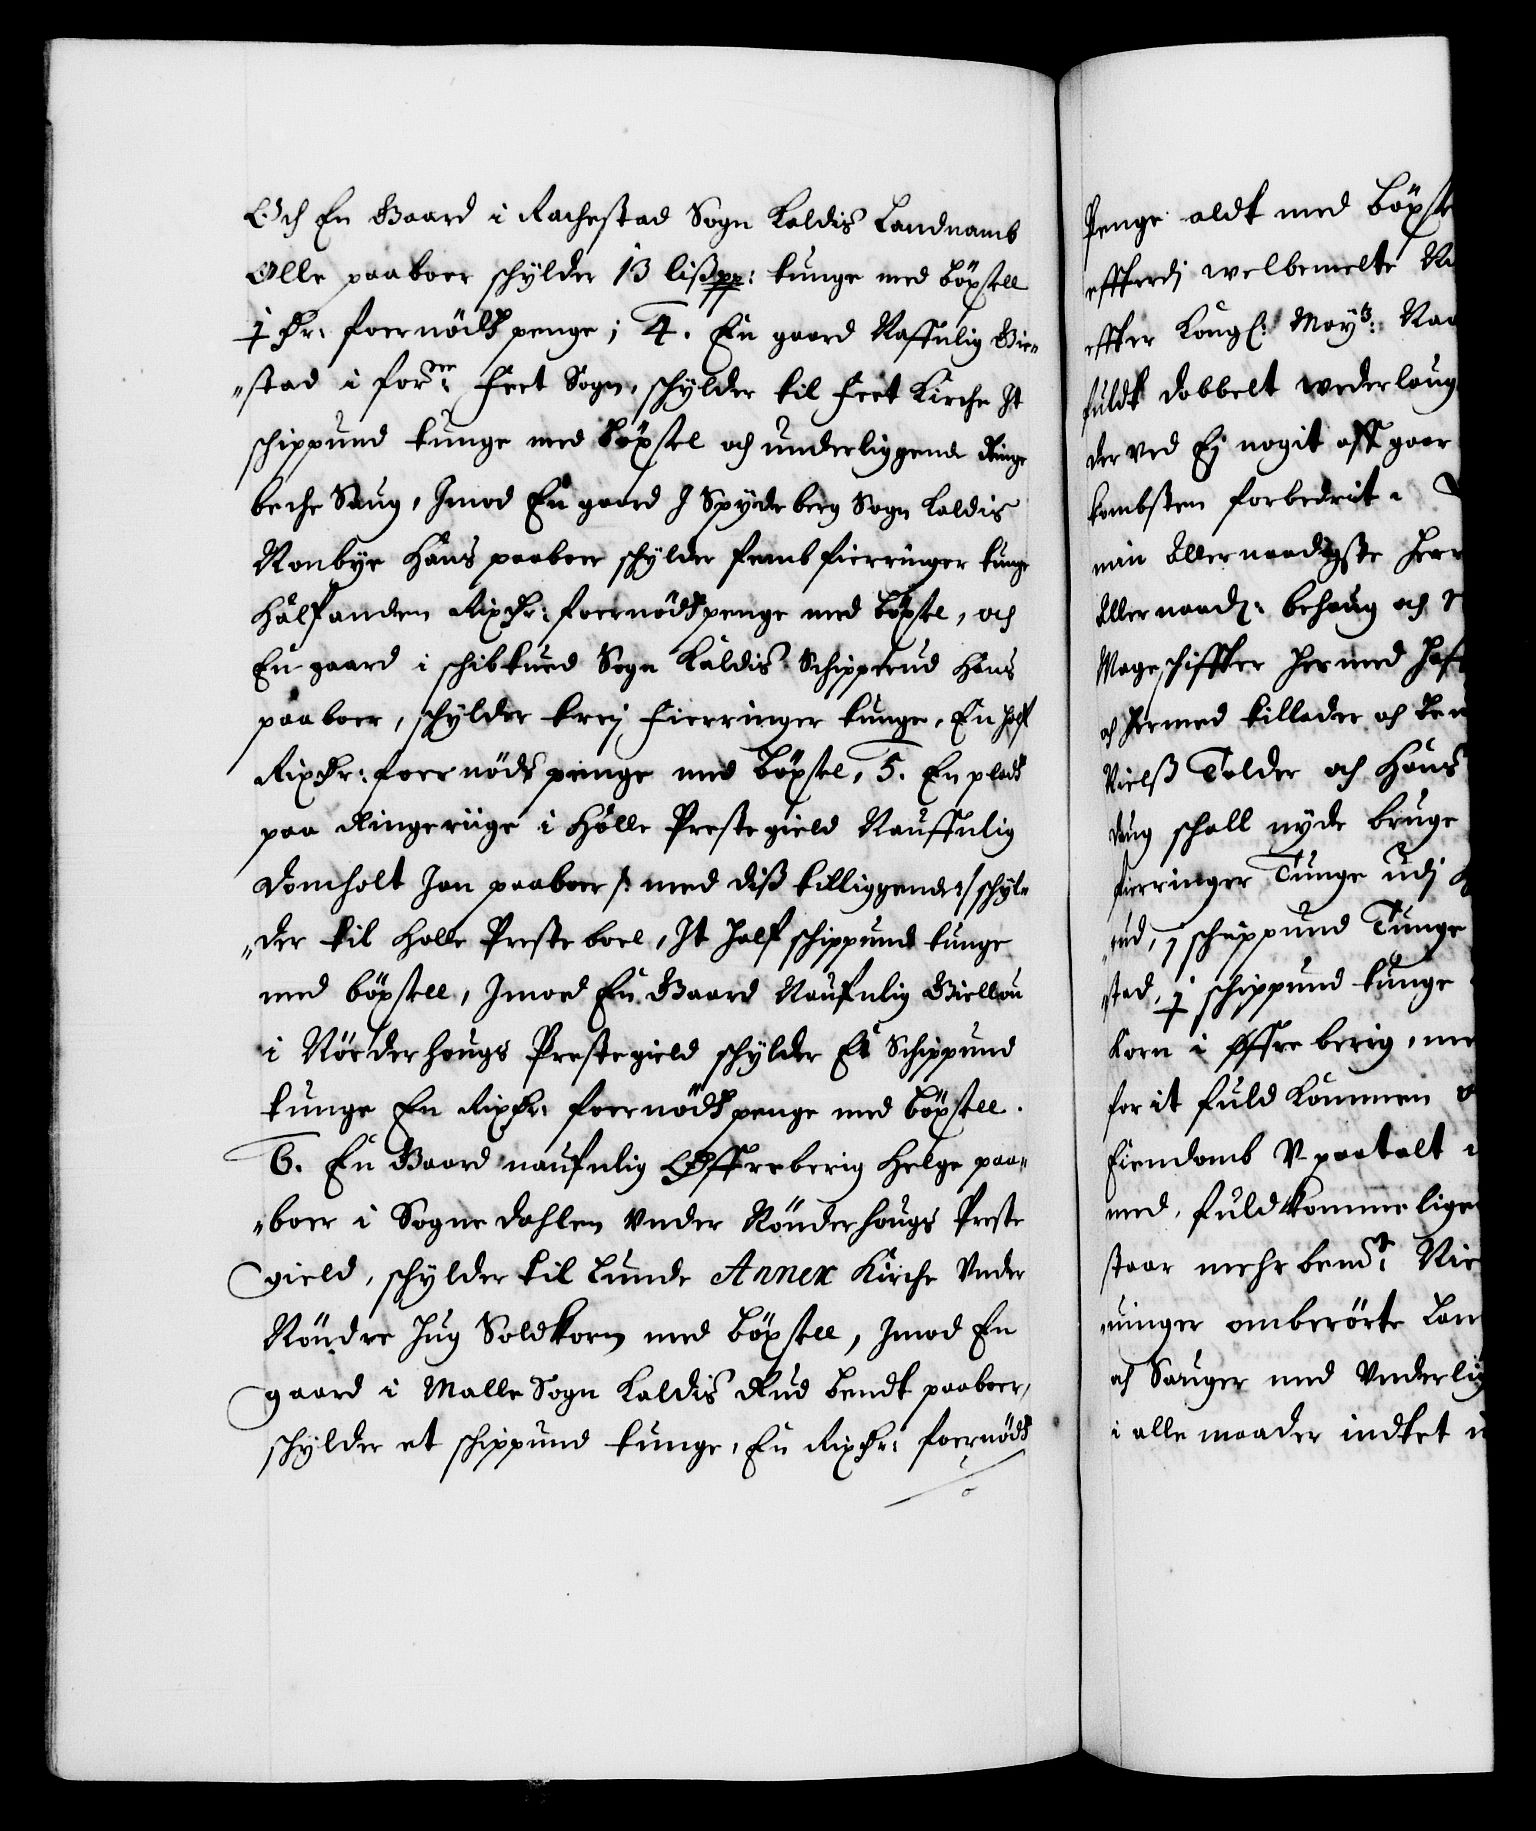 Och En Gaard i Rachestad Sogn Kaldis Landnamb
Olle paaboer schylder 13 lißpp: tunge med böxsell
1 Dr: foernödspenge; 4. En gaard Naffnlig Bie„
„stad i forne: Feet Sogn, schylder til Feet Kirche It
schippund tunge med Böxsel och underliggende Ringe
beche Saug, Imod En gaard J Spydeberg Sogn Kaldis
Ronbye Hans paaboer schylder femb fierringer tunge
Halfanden Rixdr: foernödspenge med böxsel, och
En gaard i schibtued Sogn Kaldis Schipperud Hans
paaboer, schylder trej Fierringer tunge, En half
Rixdr: foernöds penge med böxsel, 5. En plads
paa Ringeriige i Holle Prestegield Nauffnlig
Domholt Jan paaboer /: med diß tilliggende :/ schyl„
„der til Holle Presteboel, It half schippund tunge
med böxsell, Imod En Gaard Naufnlig Giellou
i Nörderhougs Prestegield schylder Et Schippund
tunge En Rixdr: foernödspenge med böxsell.
6. En Gaard naufnlig Offreberig Helge paa„
„boer i Sognedahlen Vnder Nönderhougs Preste
gield, schylder til Lunde Annex Kirche Vnder
Nöndre Hug Soldkorn med böxsell, Imod En
gaard i Walle Sogn Kaldis Rud bendt paaboer,
schylder et schippund tunge, En Rixdr: foernöds
Penge aldt med böxse
effterdj welbemelte
effter Kongl: Mayts:
fuldt dobbelt wederlaug
der ved Ej nogit aff gaar
kombsten forbedrit
min Allernaadigste Herr
Allernaad: behaug och
Mageschiffter hermed haf
och hermed tillader och
Nielß Tolder och Hans
daug schall nyde bruge
fierringer Tunge udj
rud, 1 schippund Tunge
stad, 1 schippund tunge
Korn i Offreberig, me
for it fuldkommen
Eiendomb V-paatalt
med, fuldkommelige
staar mehrbemte:
ninger omberörte
och Sauger med Vnderlig
i alle maader indtet